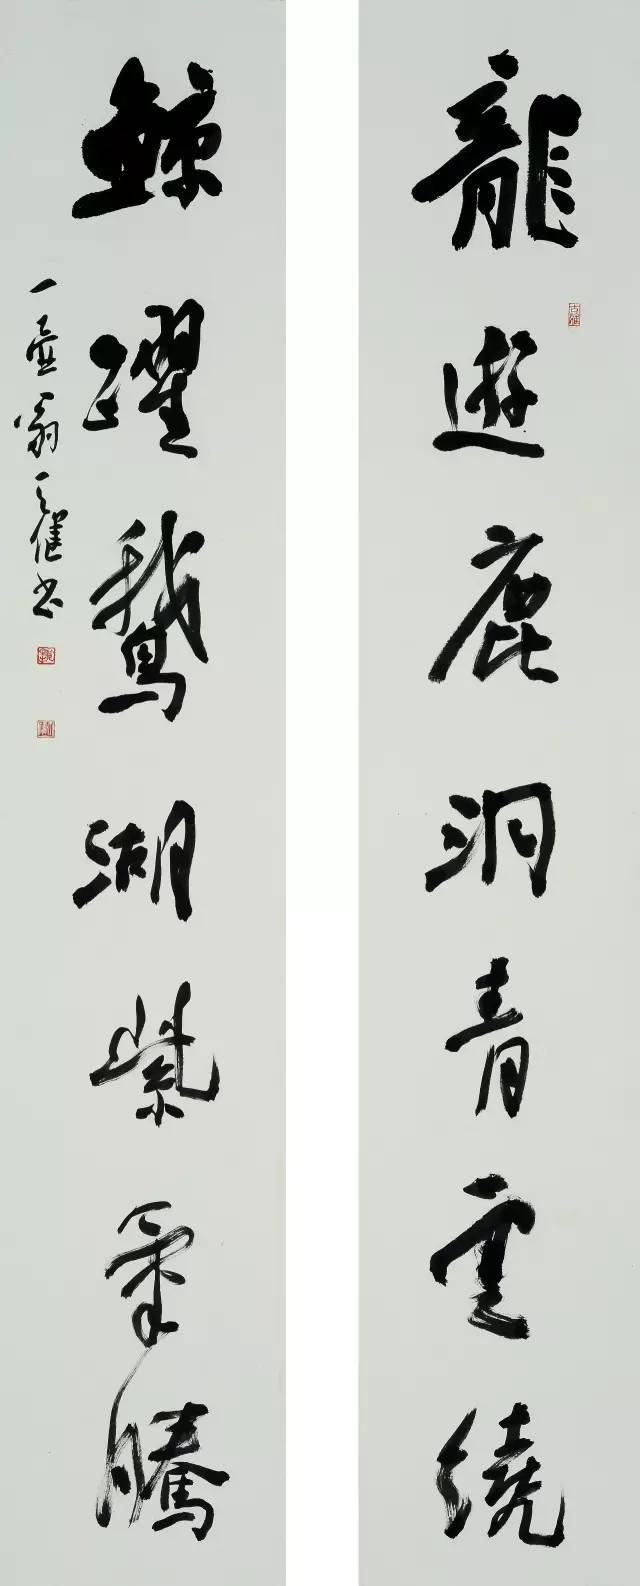 龍遊鹿洞青雲繞
鯨躍鵝湖紫氣騰
一壺翁之惟書